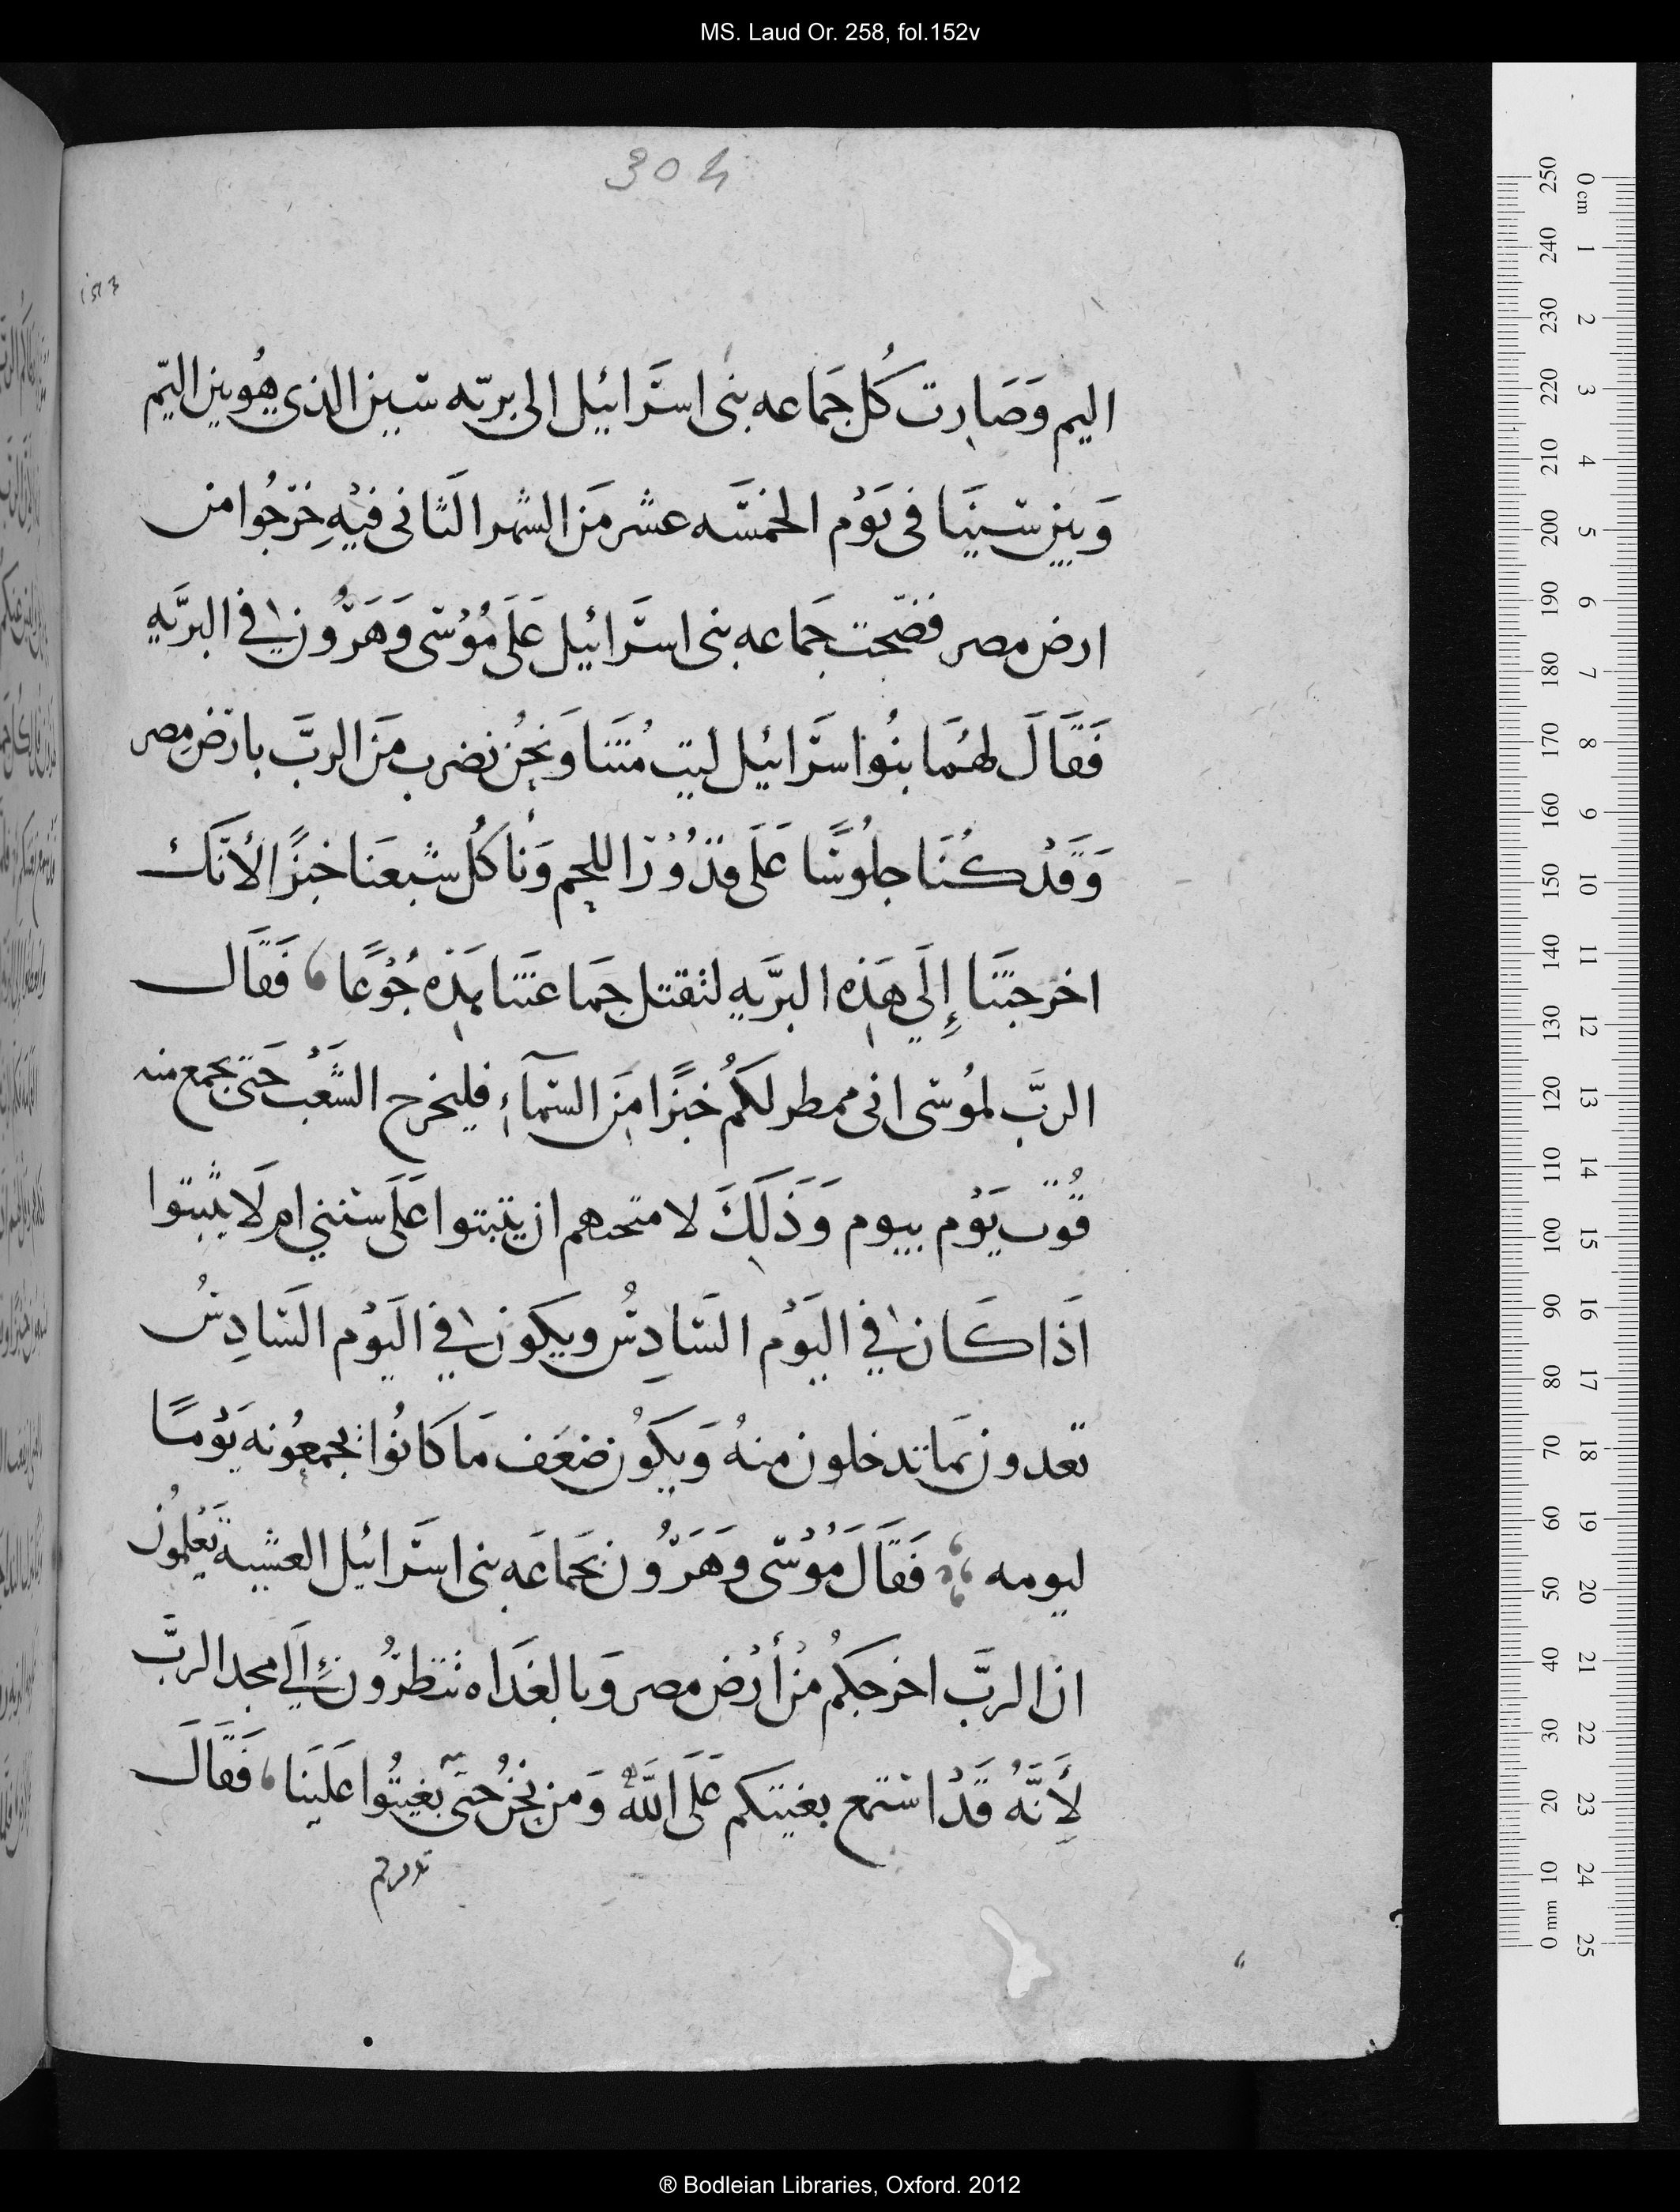 MS. Laud Or. 258, fol.152v
304
اليم وَصَارت كُل جَماعه بنى اسَرائيل الى بريّه سَين الذى هُو بين اليَم
وَبين سينَا فى يَوْم الخمسَه عشر مَن الشهر الثَانى فيْهِ خرَجُوا من
ارض مصر فضجت جَماعه بنى اسرَائيل عَلَى مُوْسَى وَهَرُون في البرَّيه
فَقَالَ لهُمَا بنُوا سرَائيل ليت مُتنَا وَنحُن نضرب مَن الربَّ بارَض مصر
وَقَدْ كُنَا جلُوسًا عَلَى قدُوْر اللحم وَنَاكُل شبعَنا خبزًا لأنَك
اخرجتنَا إِلَي هَذه البرَّيه لتقتل جمَاعتنَا بهَذه جُوْعًا فَقَال
الربَّ لمُوسَى انى ممطر لكمُ خبزًا مَن السَمآء فليخرج الشَعْب حَتى يجمع منه
قُوّت يَوْم بيوم وَذَلَكَ لامتحنهم ان يثبتوا عَلَى سنتي ام لَا يثبتوا
اَذا كَان في اليَوْم السَادِسُ ويكون في اليَوْم السَادِسُ
تعدون مَا تدخلون منهُ وَيكوُن ضعَف مَا كَانوُا يجمعُونه يَوْمًا
ليومه فَقَالَ مُوْسَى وهَرَوُن لجمَاعَه بنى اسَرائيل العشيه تَعْلمُوُن
ان الربَّ اخرجكمُ مْن أرْض مصر وَبالغدَاه تنظرُون إلَي مجد الربَّ
لِأَنَّهُ قَدْ استمع بغيتكم عَلَى اللَّهُ وَمن نحُن حتىَ بغيتُوا عَلَينَا فَقَالَ
0 cm 1 2 3 4 5 6 7 8 9 10 11 12 13 14 15 16 17 18 19 20 21 22 23 24 25
250 240 230 220 210 200 190 180 170 160 150 140 130 120 110 100 90 80 70 60 50 40 30 20 10 0 mm
® Bodleian Libraries, Oxford. 2012